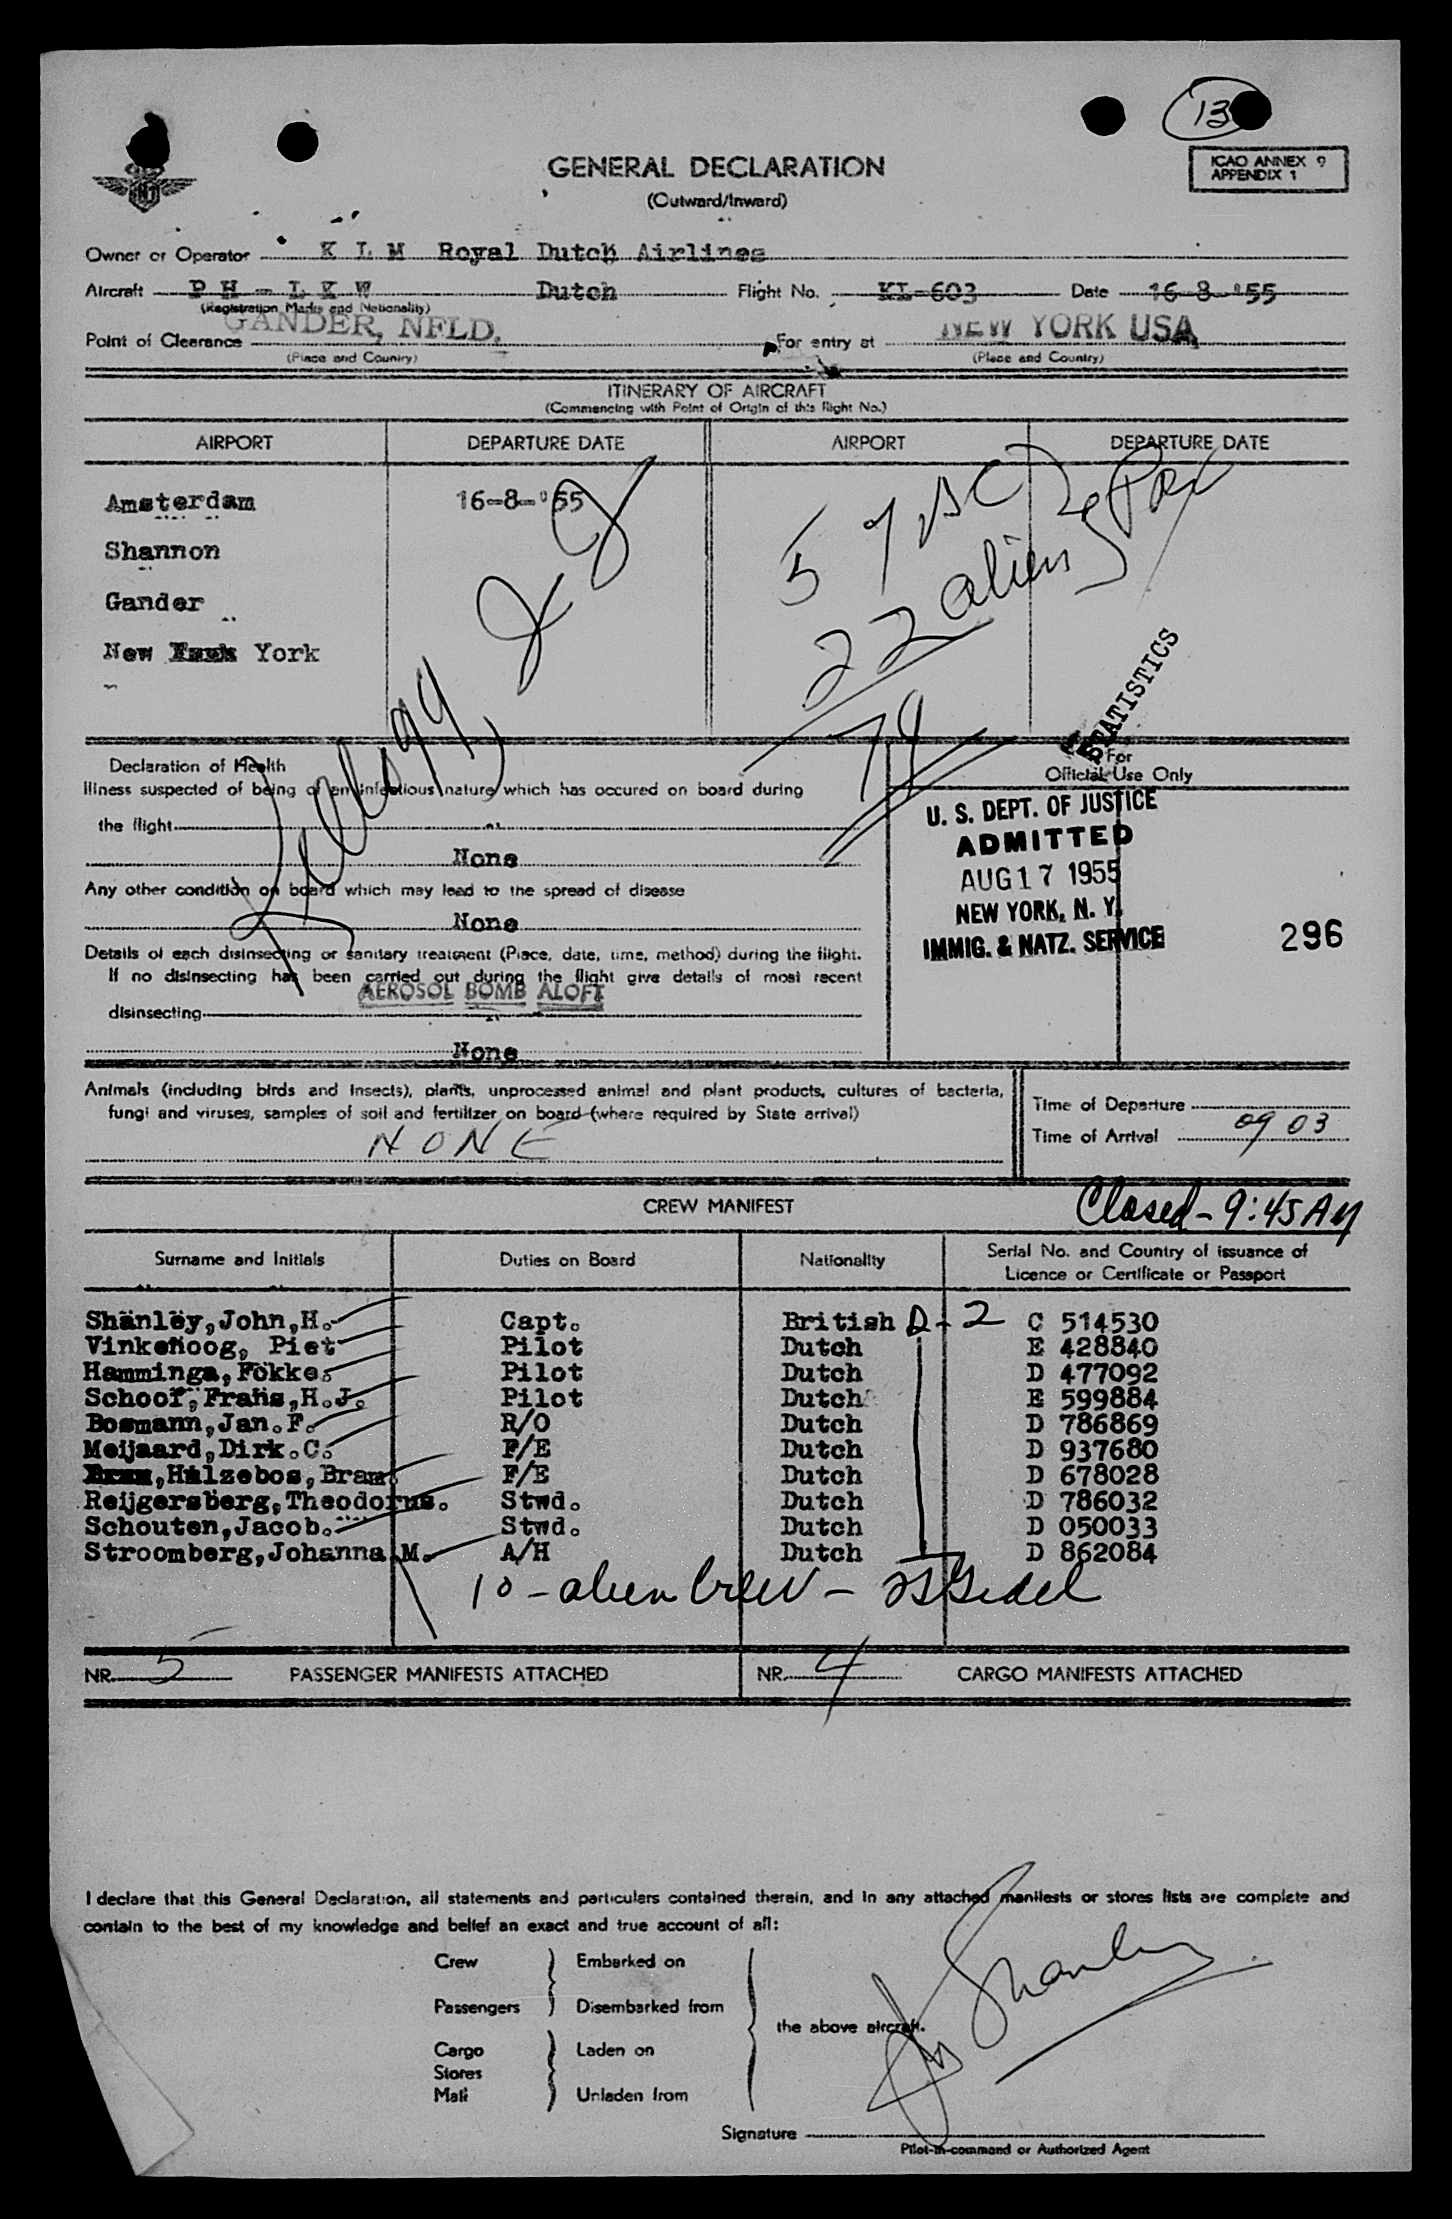 13
GENERAL DECLARATION
(Outward/Inward)
ICAO ANNEX 9
APPENDIX 1
Owner or Operator K L M Royal Dutch Airlines
Aircraft P H - L K W Dutch Flight No. KL-603 Date 16-8-'55
(Registration Marks and Nationality)
Point of Clearance GANDER, NFLD. For entry at NEW YORK USA
(Place and Country) (Place and Country)
ITINERARY OF AIRCRAFT
(Commencing with Point of Origin of this flight No.)
AIRPORT DEPARTURE DATE AIRPORT DEPARTURE DATE
Amsterdam 16-8-'55
Shannon
Gander
New York
22 alien
STATISTICS
For
Official Use Only
U. S. DEPT. OF JUSTICE
ADMITTED
AUG 17 1955
NEW YORK, N. Y.
IMMIG. & NATZ. SERVICE
296
Declaration of Health
Illness suspected of being of an infectious nature which has occured on board during
the flight
None
Any other condition on board which may lead to the spread of disease
None
Details of each disinsecting or sanitary treatment (Place, date, time, method) during the flight.
If no disinsecting has been carried out during the flight give details of most recent
AEROSOL BOMB ALOFT
disinsecting
None
Animals (including birds and insects), plants, unprocessed animal and plant products, cultures of bacteria,
fungi and viruses, samples of soil and fertilizer on board (where required by State arrival)
NONE
Time of Departure
Time of Arrival 0903
CREW MANIFEST
Closed - 9:45 AM
Surname and Initials Duties on Board Nationality Serial No. and Country of issuance of
Licence or Certificate or Passport
Shanley,John,H. Capt. British D - 2 C 514530
Vinkenoog, Piet Pilot Dutch E 428840
Hamminga,Fokke. Pilot Dutch D 477092
Schoof,Frans,H.J. Pilot Dutch E 599884
Bosmann,Jan.F. R/O Dutch D 786869
Meijaard,Dirk.C. F/E Dutch D 937680
,Hulzebos,Bram F/E Dutch D 678028
Reijgersberg,Theodorus. Stwd. Dutch D 786032
Schouten,Jacob. Stwd. Dutch D 050033
Stroomberg,Johanna M. A/H Dutch D 862084
10 - alien Crew -
NR. 5 PASSENGER MANIFESTS ATTACHED NR. 4 CARGO MANIFESTS ATTACHED
I declare that this General Declaration, all statements and particulars contained therein, and in any attached manifests or stores lists are complete and
contain to the best of my knowledge and belief an exact and true account of all:
Crew Embarked on
Passengers Disembarked from
the above aircraft.
Cargo Laden on
Stores
Mail Unladen from
Signature
Pilot-in-command or Authorized Agent